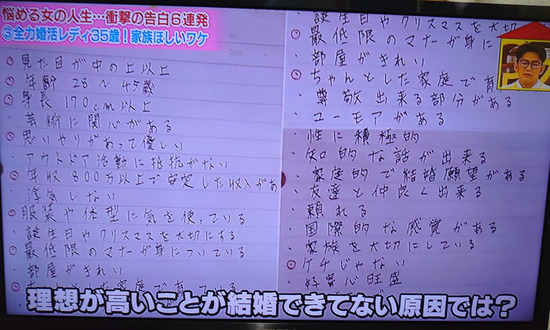 悩める女の人生…衝撃の告白6連発
③全力婚活レディ35歳!家族ほしいワケ
見た目が中の上以上
年齢 28〜45歳
身長 170cm以上
芸術に関心がある
思いやりがあって優しい
アウトドア活動に抵抗がない
年収 800万以上で安定した収入があ
浮気しない
服装や体型に気を使っている
誕生日やクリスマスを大切にする
最低限のマナーが身についている
部屋がきれい
誕生日やクリスマスを大切
最低限のマナーが身に
部屋がきれい
ちゃんとした家庭で育
尊敬出来る部分がある
ユーモアがある
性に積極的
知的な話が出来る
家庭的で結婚願望がある
友達と仲良く出来る
頼れる
国際的な感覚がある
家族を大切にしている
ケチじゃない
好奇心旺盛
理想が高いことが結婚できてない原因では?